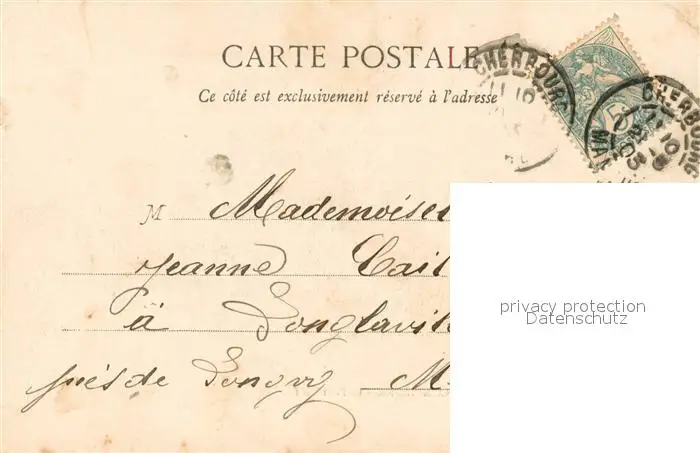 CARTE POSTALE
Ce côté est exclusivement réservé à l'adresse
CHERBOURG
CHERBOURG
5
M Mademoisel
Jeanne Cail
à Longlavil
près de Longwy M
privacy protection
Datenschutz